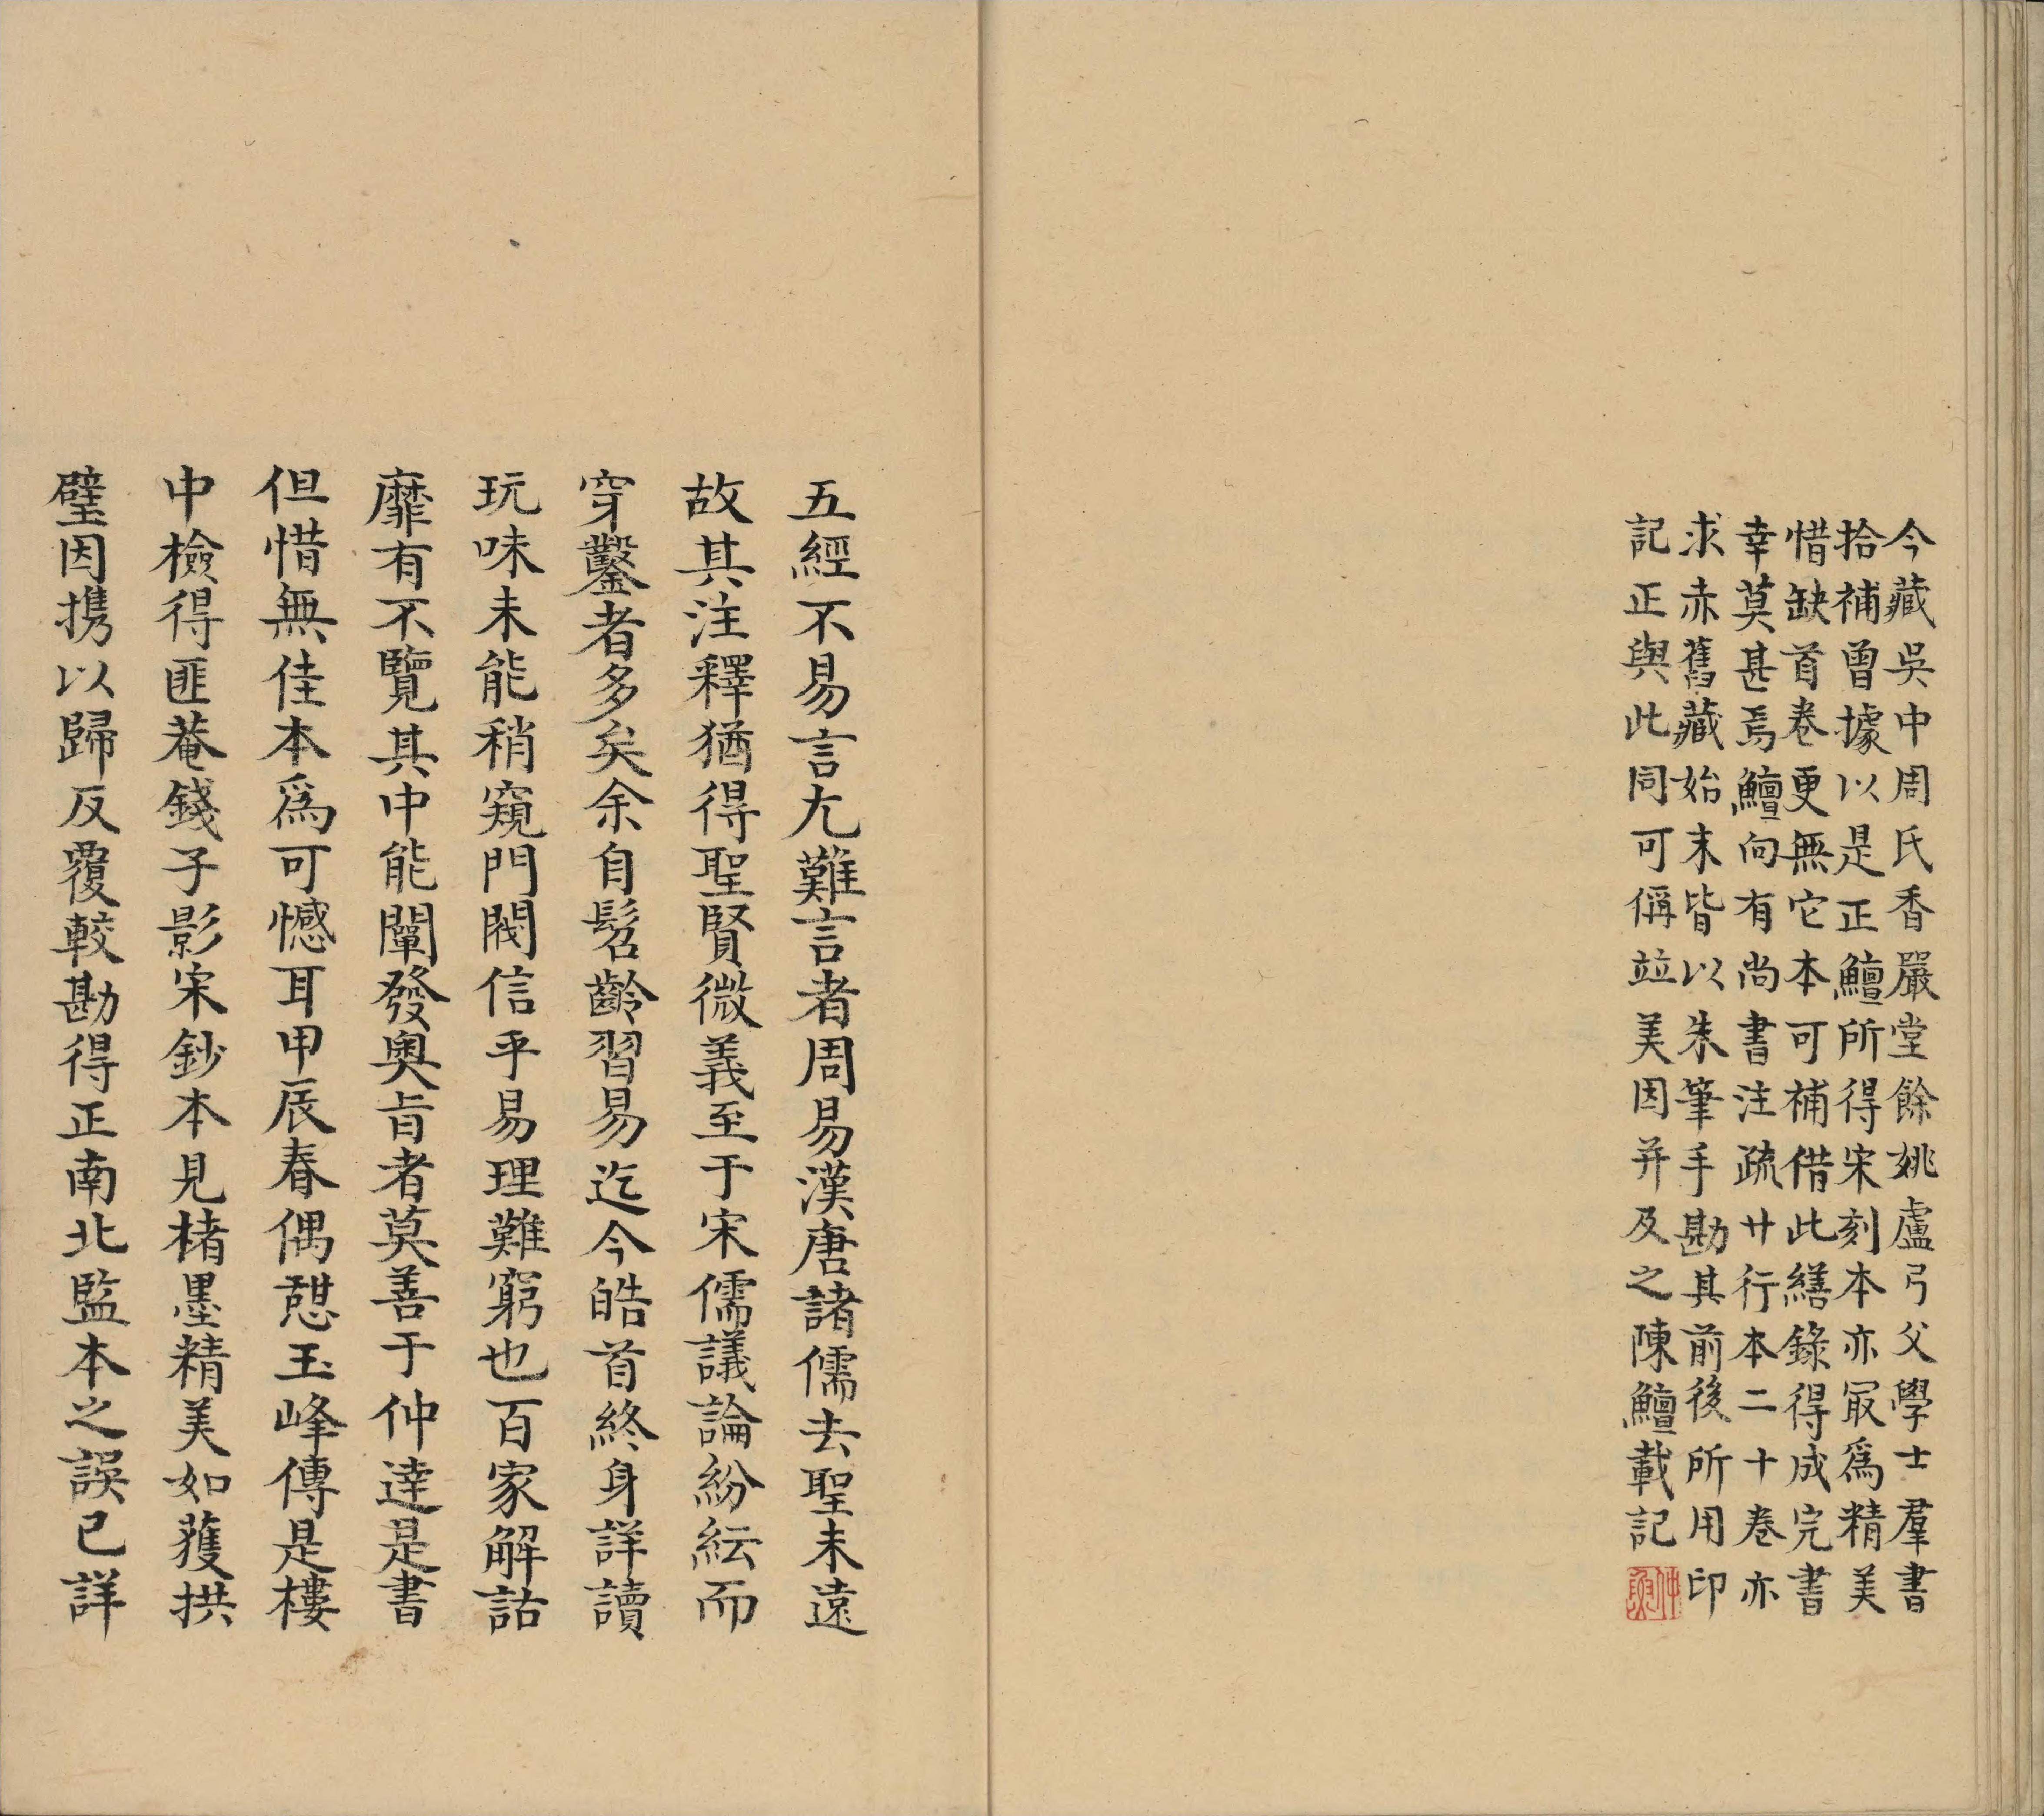 今藏吳中周氏香嚴堂餘姚盧弓父學士羣書
拾補曾據以是正鱣所得宋刻本亦㝡爲精美
惜缺首卷更無它本可補借此繕錄得成完書
幸莫甚焉鱣向有尚書注疏廿行本二十卷亦
求赤舊藏始末皆以朱筆手勘其前後所用印
記正與此同可偁竝美因并及之陳鱣載記
仲魚
五經不易言尢難言者周易漢唐諸儒去聖未遠
故其注釋猶得聖賢微義至于宋儒議論紛紜而
穿鑿者多矣余自髫齡習易迄今皓首終身詳讀
玩味未能稍窺門閥信乎易理難窮也百家解詁
靡有不覽其中能闡發奧旨者莫善于仲達是書
但惜無佳本爲可憾耳甲辰春偶憇玉峰傳是樓
中檢得匪菴錢子影宋鈔本見楮墨精美如獲拱
璧因携以歸反覆較勘得正南北監本之誤已詳